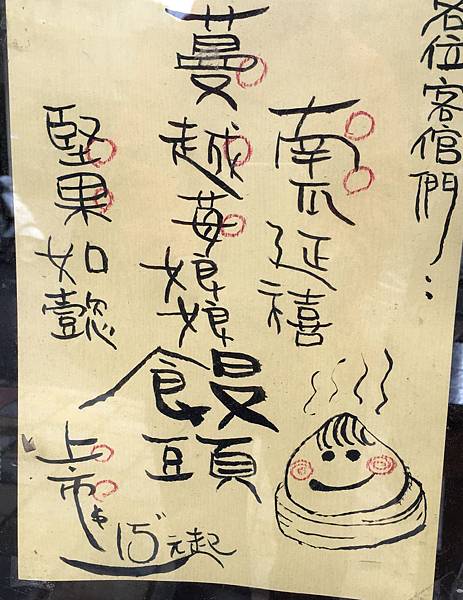 各位客倌們：
南瓜延禧
蔓越莓娘娘
饅頭
堅果如懿
上市
15元起